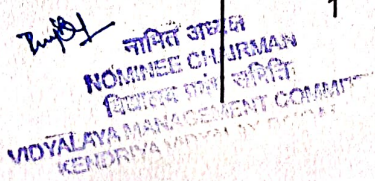 1
नामित अध्यक्ष
NOMINEE CHAIRMAN
विद्यालय प्रबंध समिति
VIDYALAYA MANAGEMENT COMMITTEE
KENDRIYA VIDYALAYA